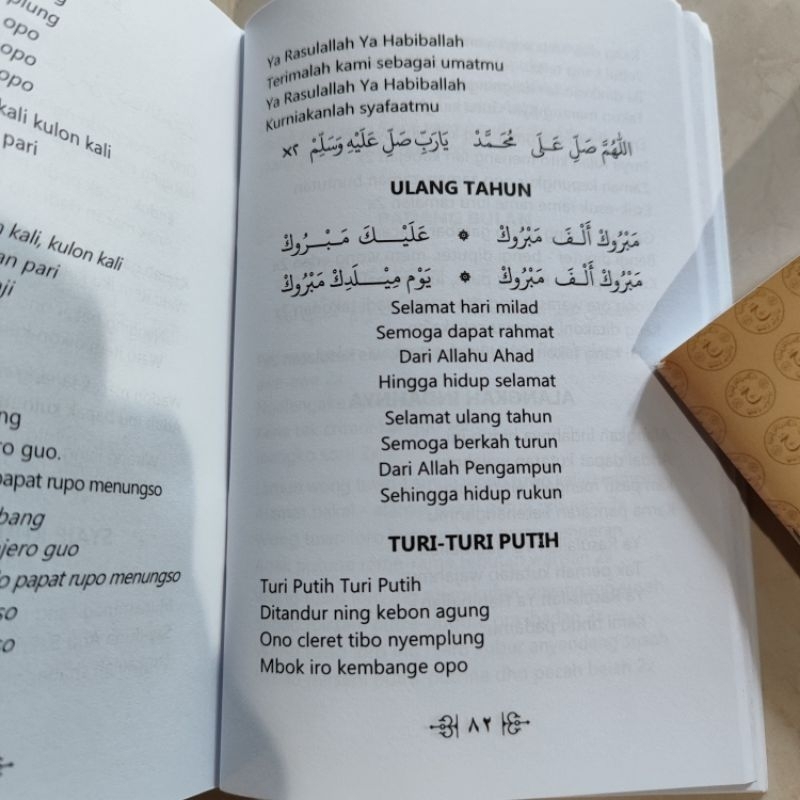 plung
opo
opo
opo
kali kulon kali
pari
kali, kulon kali
an pari
ji
ng
ro guo.
papat rupo menungso
bang
jero guo
o papat rupo menungso
so
so
Ya Rasulallah Ya Habiballah
Terimalah kami sebagai umatmu
Ya Rasulallah Ya Habiballah
Kurniakanlah syafaatmu
اَللّٰهُمَّ صَلِّ عَلَى مُحَمَّدْ يَارَبِّ صَلِّ عَلَيْهِ وَسَلِّمْ ×٢
ULANG TAHUN
مَبْرُوكْ أَلْفَ مَبْرُوكْ ۞ عَلَيْكَ مَبْرُوكْ
مَبْرُوكْ أَلْفَ مَبْرُوكْ ۞ يَوْم مِيْلَدِكْ مَبْرُوكْ
Selamat hari milad
Semoga dapat rahmat
Dari Allahu Ahad
Hingga hidup selamat
Selamat ulang tahun
Semoga berkah turun
Dari Allah Pengampun
Sehingga hidup rukun
TURI-TURI PUTIH
Turi Putih Turi Putih
Ditandur ning kebon agung
Ono cleret tibo nyemplung
Mbok iro kembange opo
٨٢